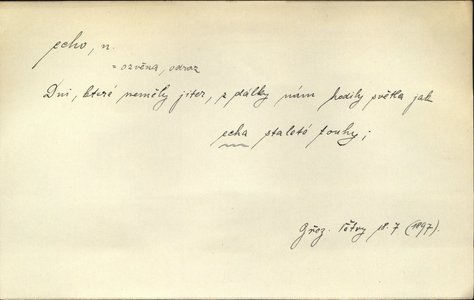 echo, n.
= ozvěna, odraz
Dni, které neměly jiter, z dálky nám hodily světla jak
echa staleté touhy;
Břez. Větry 18. 7 (1897).